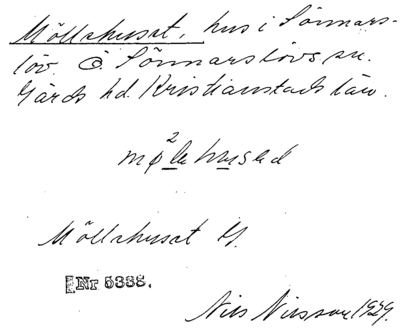 Möllahuset, hus i Sönnars-
löv. Ö. Sönnarslövs sn.
Gärds hd. Kristianstads län.
Möllahuset
Nr 5338.
Nils Nilsson 1929.